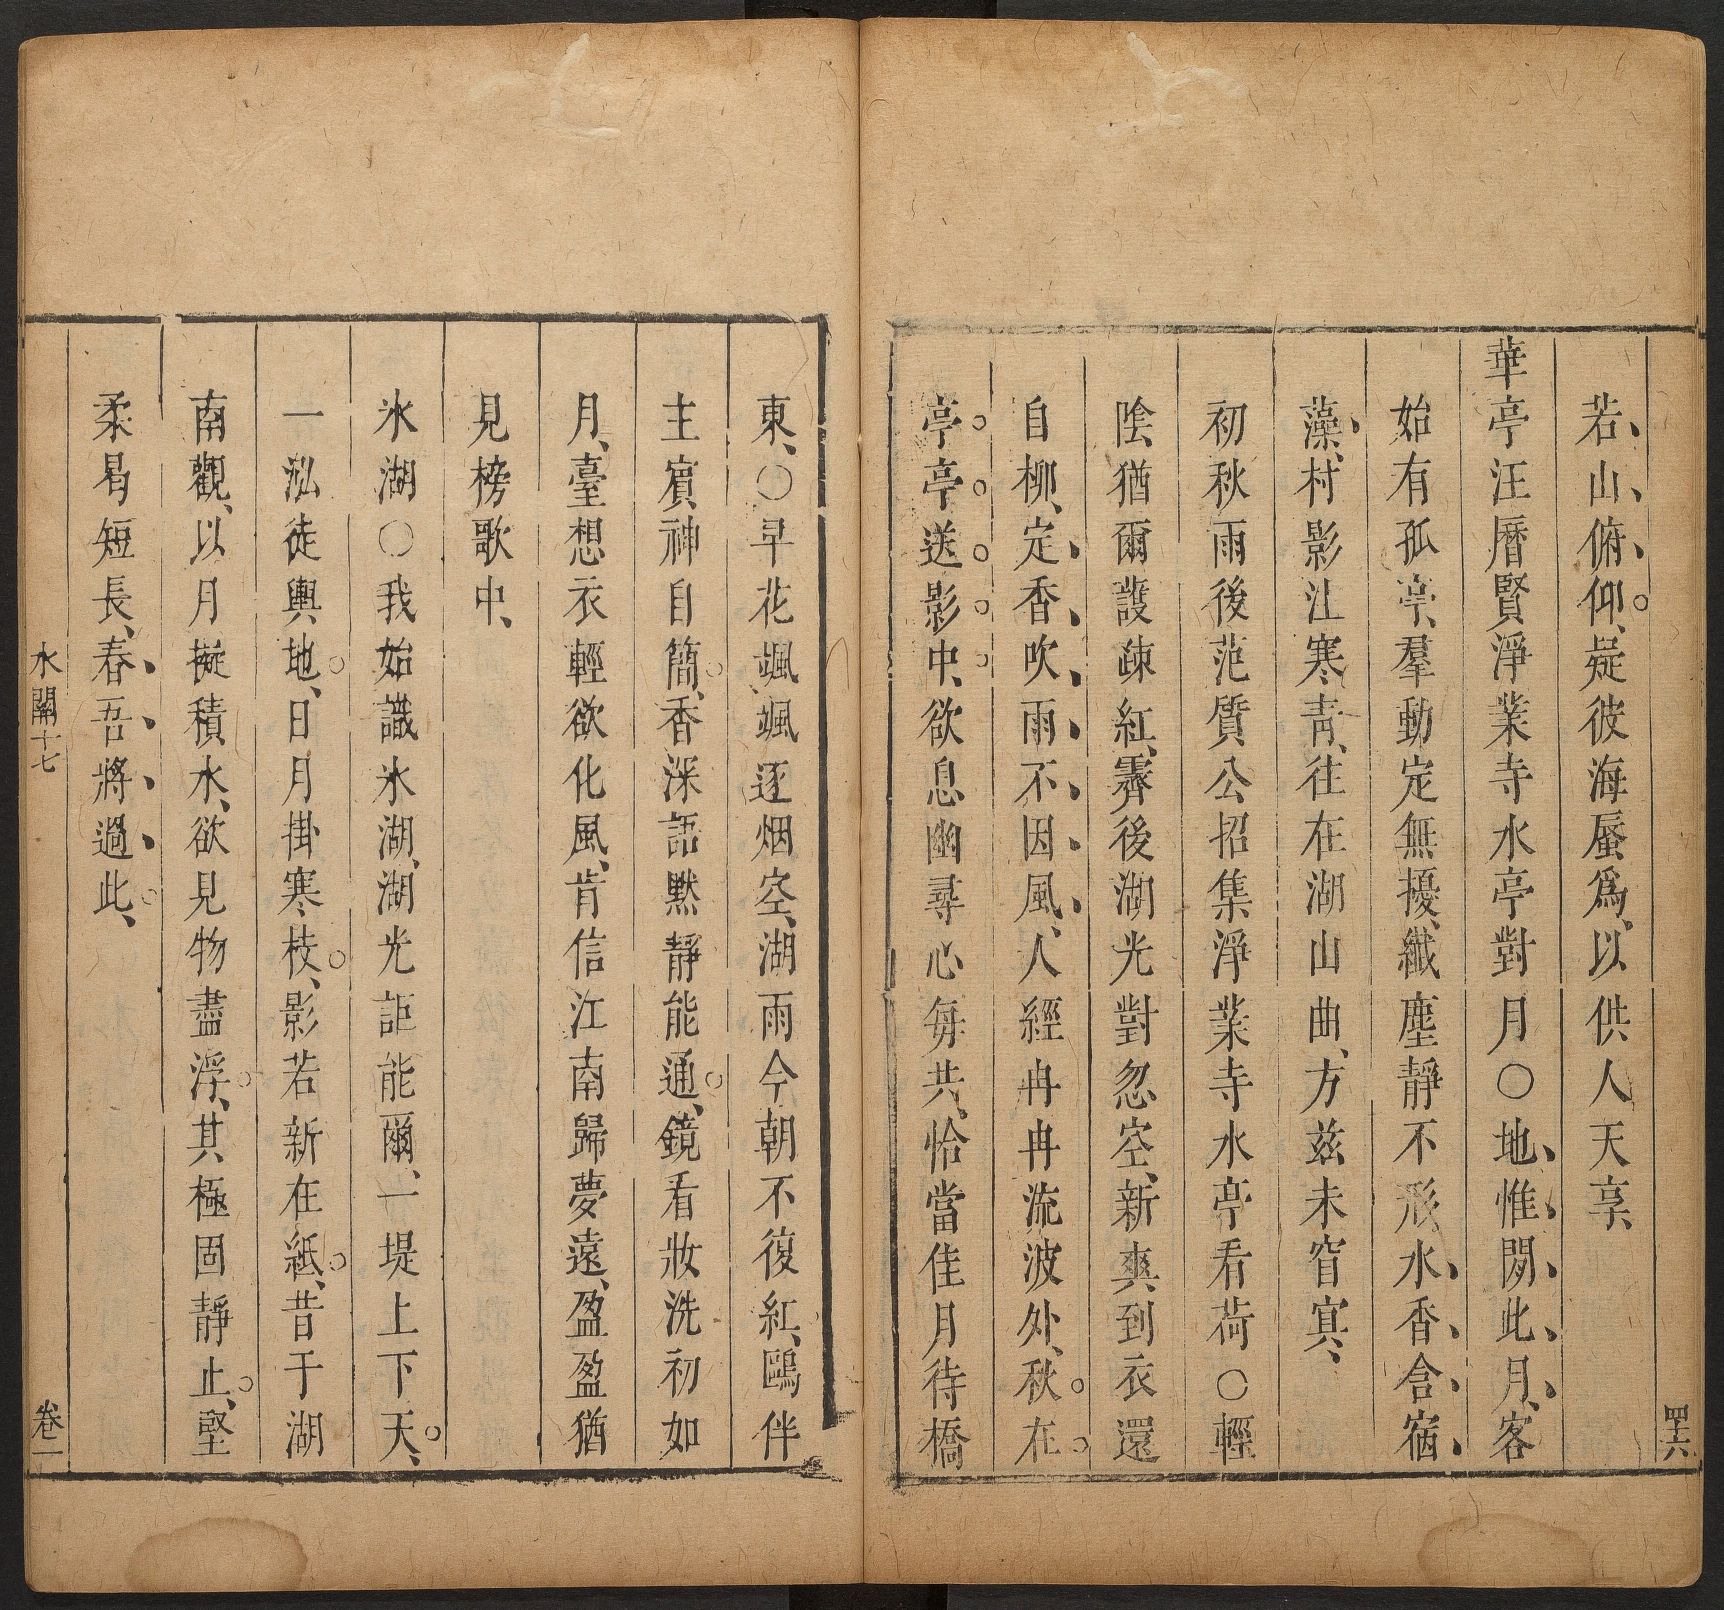 若、山、俯、仰、疑彼海蜃爲、以供人天享、
華亭汪曆賢淨業寺水亭對月○地、惟閒、此、月、客
始有孤亭、羣動定無擾、纖塵靜不形、水、香、含、宿、
藻、村影泩寒靑、往在湖山曲、方兹未窅寘、
初秋雨後范質公招集淨業寺水亭看荷○輕
陰猶爾護疎紅、霽後湖光對忽空、新爽到衣還
自柳、定、香、吹、雨、不、因、風、人經冉冉流波外、秋在
亭亭送影中、欲息幽尋心每共、恰當佳月待橋
東、○早花颯颯逐烟空、湖雨今朝不復紅、鷗伴
主賓神自簡、香深語默靜能通、鏡看妝洗初如
月、臺想衣輕欲化風、肯信江南歸夢遠、盈盈猶
見榜歌中、
氷湖○我始識氷湖、湖光詎能爾、一堤上下天、
一泓徒輿地、日月掛寒枝、影若新在紙、昔于湖
南觀、以月擬積水、欲見物盡浮、其極固靜止、堅
柔曷短長、春、吾、將、過、此、
水關十七
卷一
四六